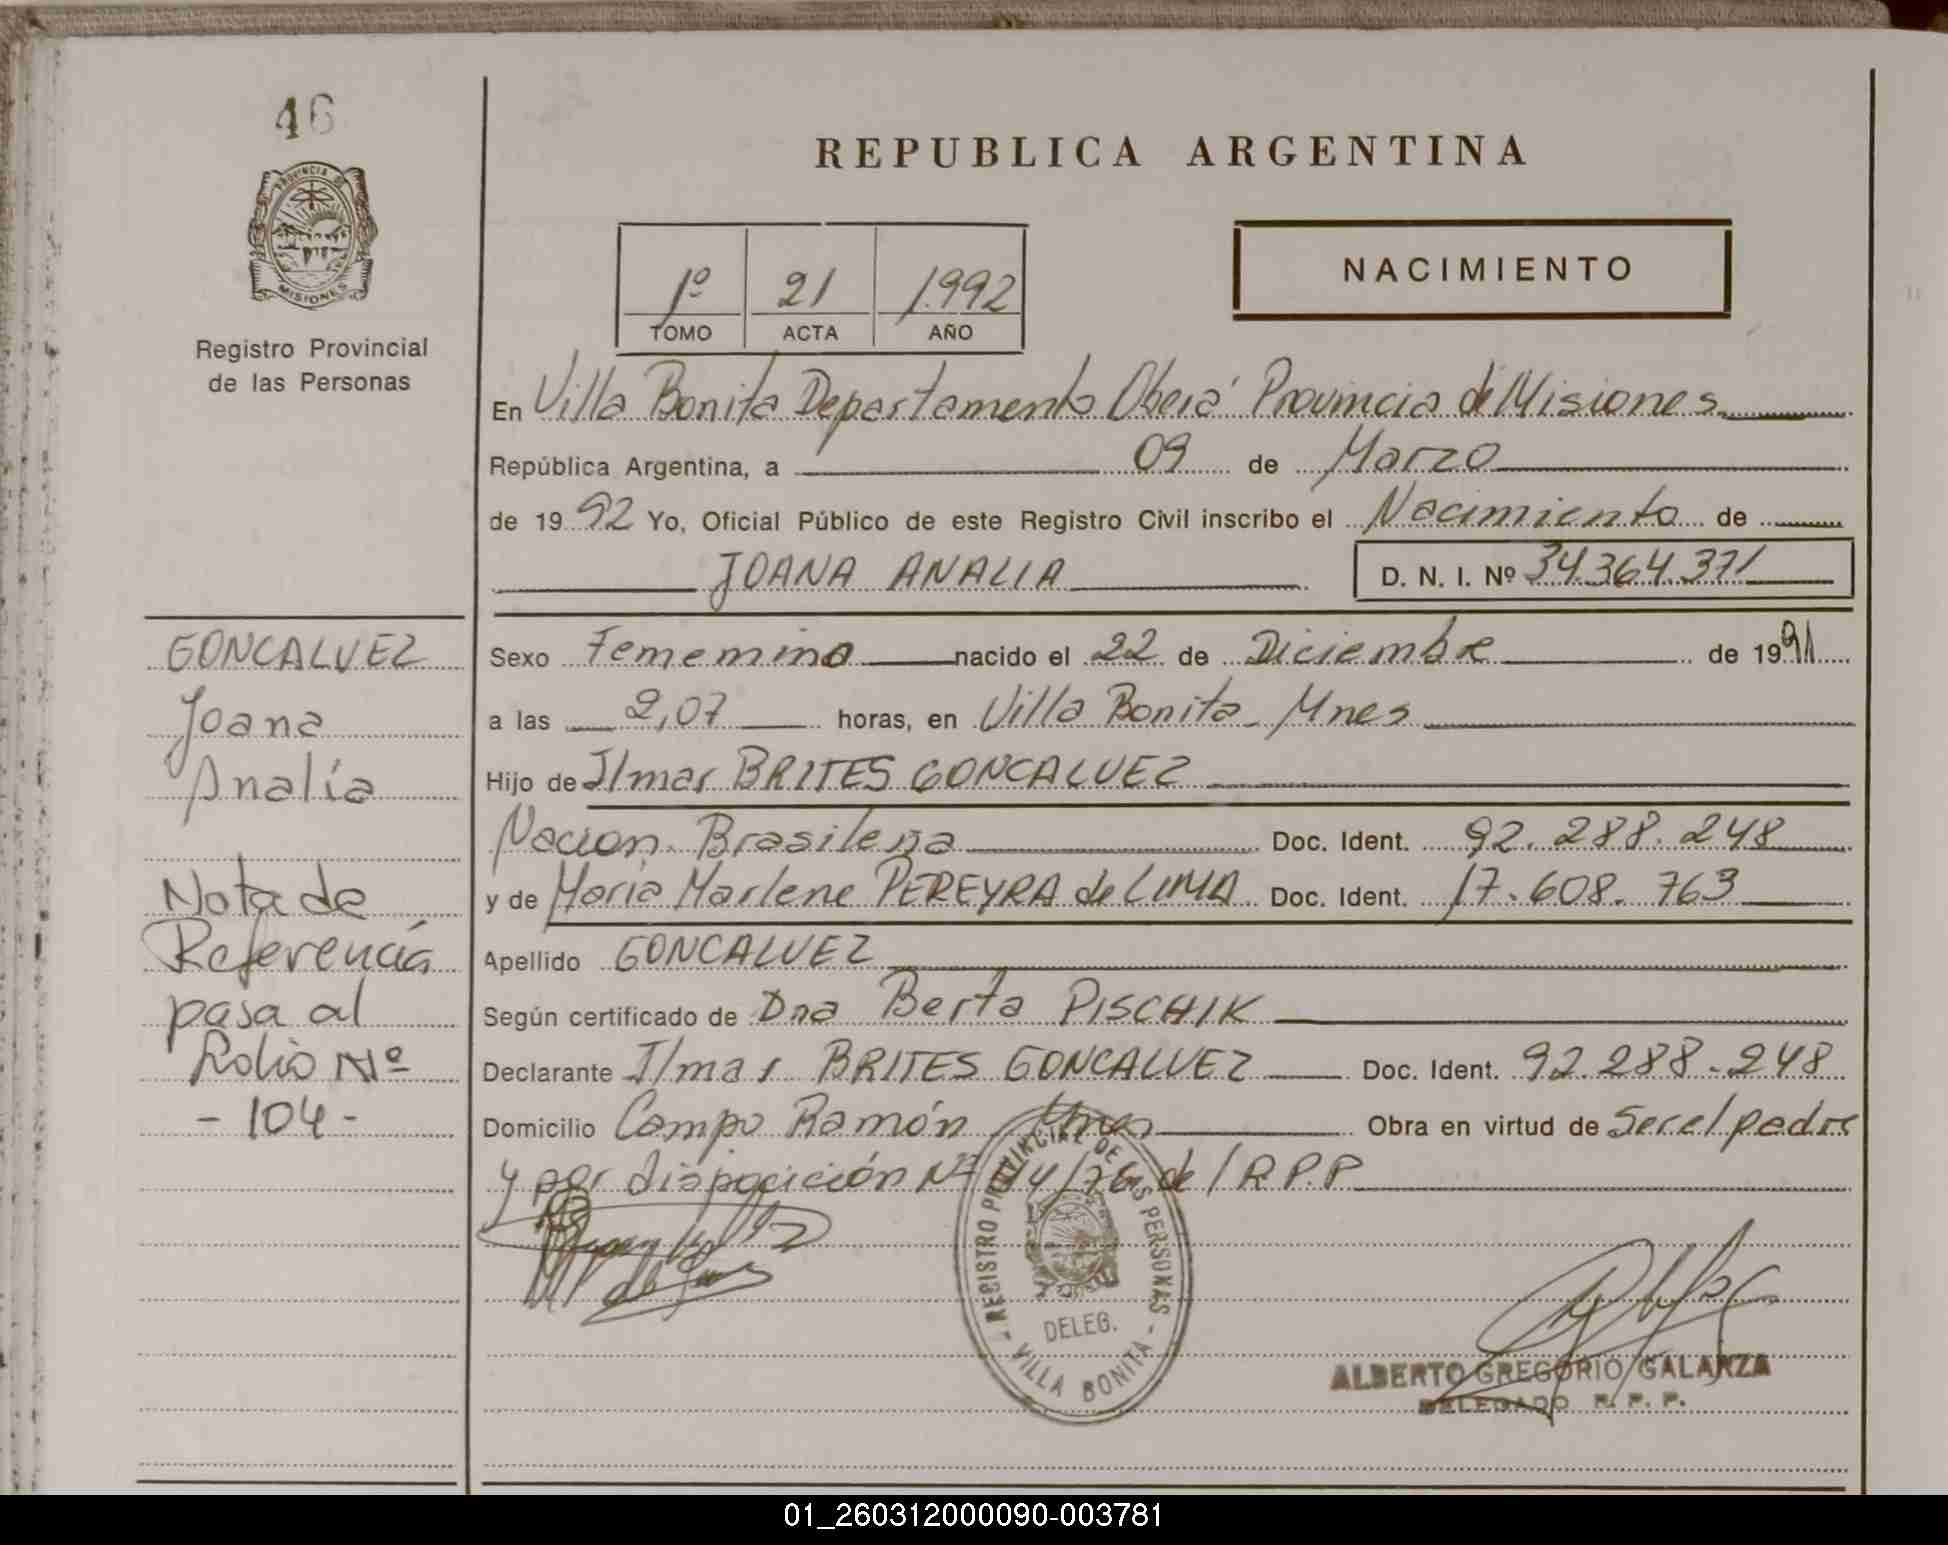 46
PROVINCIA DE
MISIONES
Registro Provincial
de las Personas
REPUBLICA ARGENTINA
1º 21 1.992
TOMO ACTA AÑO
NACIMIENTO
En Villa Bonita Departamento Oberá Provincia de Misiones
República Argentina, a 09 de Marzo
de 19 92 Yo, Oficial Público de este Registro Civil inscribo el Nacimiento de
JOANA ANALIA D. N. I. Nº 34.364.371
GONCALVEZ
Joana
Analía
Nota de
Referencia
pasa al
Folio Nº
- 104 -
Sexo Femenino nacido el 22 de Diciembre de 1991
a las 2,07 horas, en Villa Bonita - Mnes
Hijo de Ilmar BRITES GONCALVEZ
Nacion. Brasileña Doc. Ident. 92.288.248
y de Maria Marlene PEREYRA de LIMA Doc. Ident. 17.608.763
Apellido GONCALVEZ
Según certificado de Dra Berta PISCHIK
Declarante Ilmar BRITES GONCALVEZ Doc. Ident. 92.288.248
Domicilio Campo Ramón Mnes Obra en virtud de Ser el padre
y por disposición Nº /76 del R.P.P
REGISTRO PROVINCIAL DE LAS PERSONAS
DELEG.
- VILLA BONITA -
ALBERTO GREGORIO GALARZA
DELEGADO R. P. P.
01_260312000090-003781